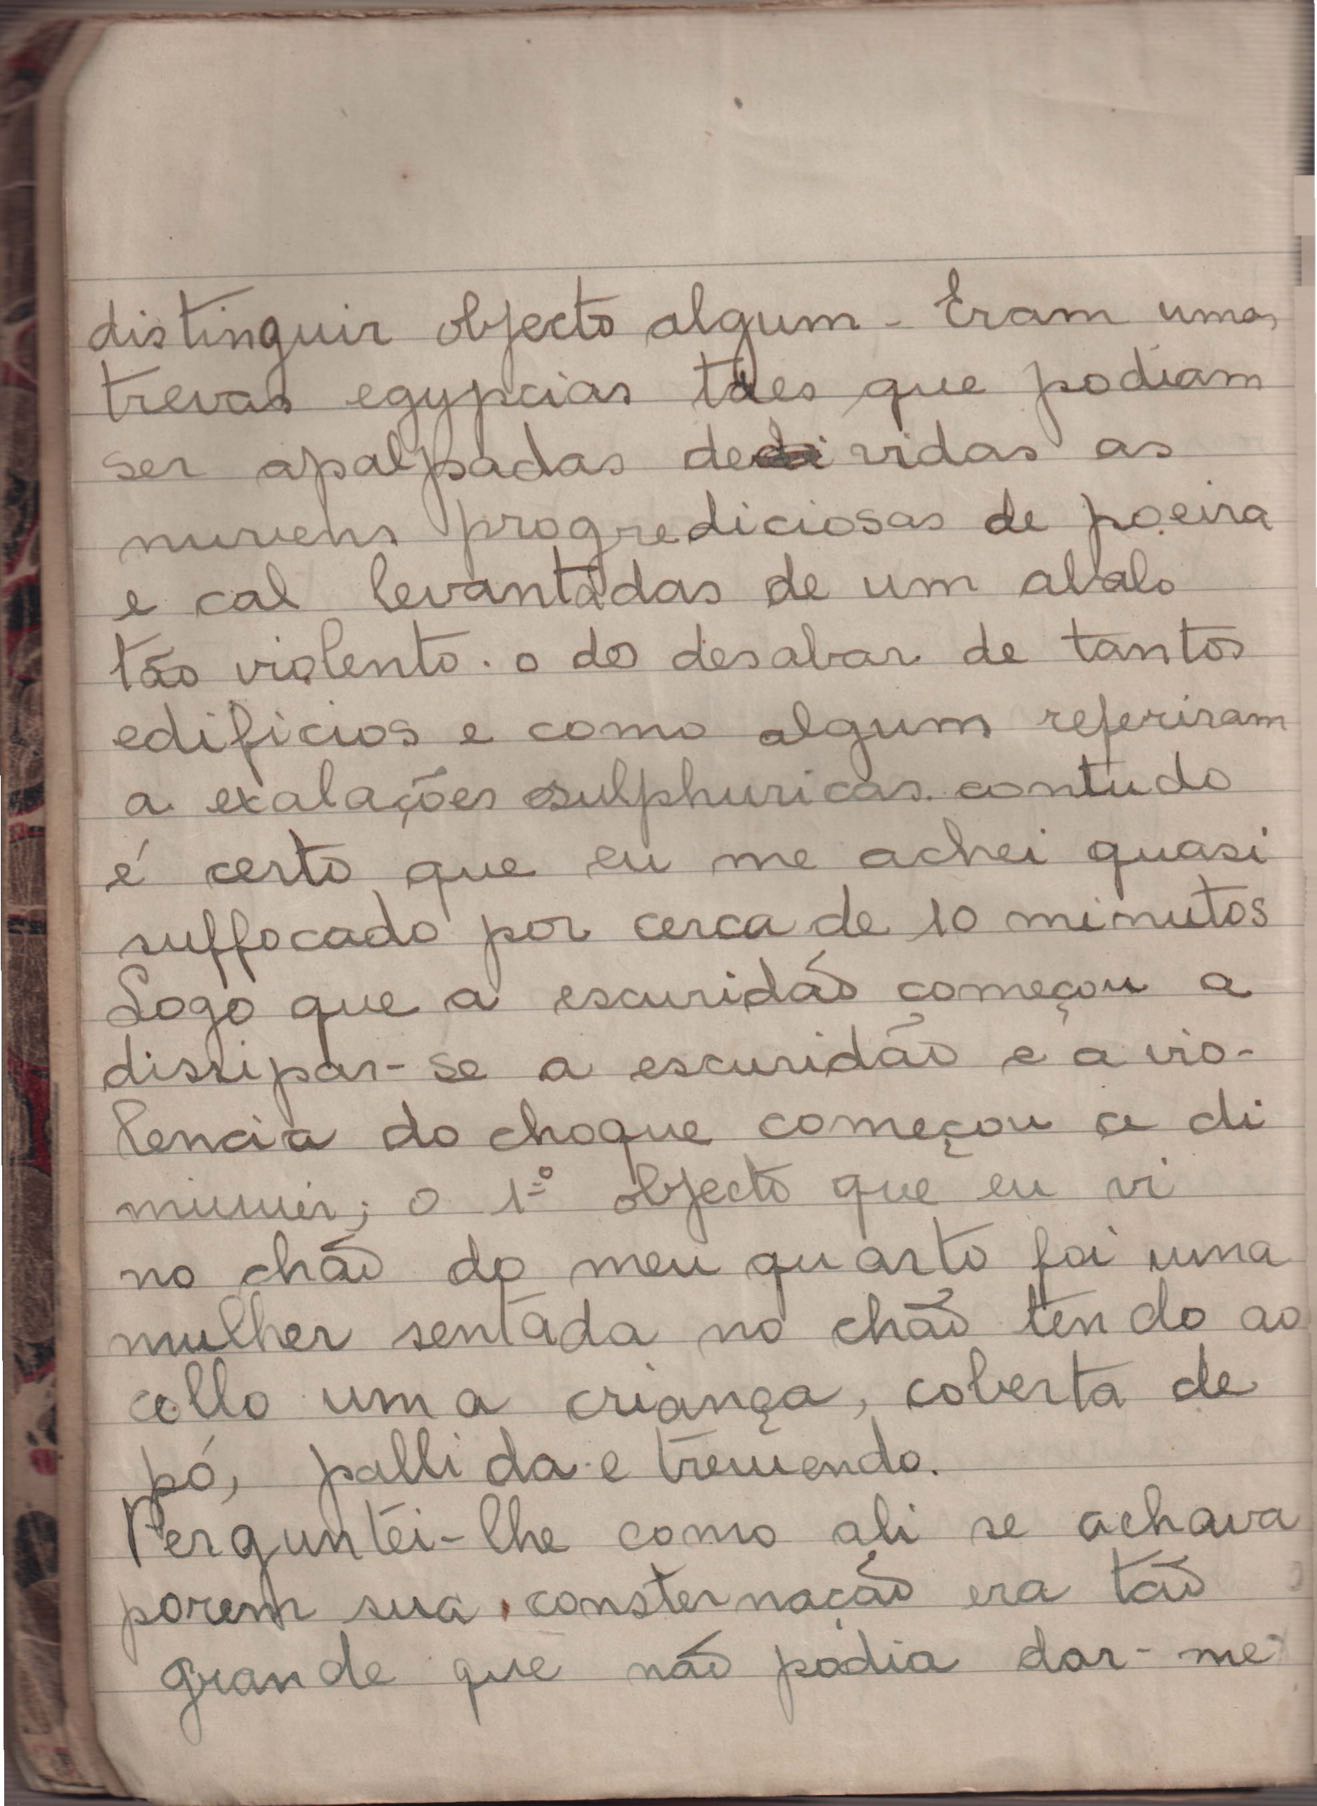 distinguir objecto algum - Eram umas
trevas egypcias taes que podiam
ser apalpadas de vidas as
nuvens progrediciosas de poeira
e cal levantadas de um abalo
tão violento. o do desabar de tantos
edificios e como algum referiram
a exalações sulphuricas. contudo
é certo que eu me achei quasi
suffocado por cerca de 10 minutos
Logo que a escuridão começou a
dissipar-se a escuridão e a vio-
lencia do choque começou a di
minuir; o 1º objecto que eu vi
no chão do meu quarto foi uma
mulher sentada no chão tendo ao
collo uma criança, coberta de
pó, pallida e tremendo.
Perguntei-lhe como ali se achava
porem sua consternação era tão
grande que não podia dar-me